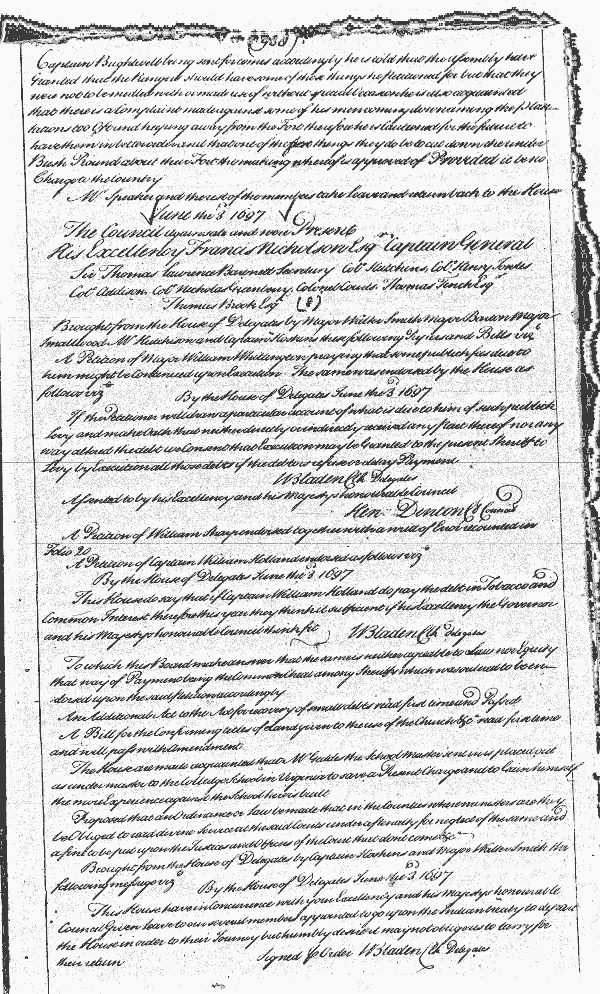 (938)
Captain Brightwell being sent for comes accordingly he is told that the Assembly have
Granted that the Rangers should have some of those things he petitioned for but that they
were not to be imbezled with or made use of without great occasion he is also acquainted
that there is a Complaint made against some of his men coming down among the plan-
tations too Oft and keeping away from the Fort therefore he is Cautioned for the future to
have them in better order and that one of the first things they do be to cut down the under
Bush Round about their Fort the making whereof is approved of Provided it be no
Charge to the Country
Mr Speaker and the rest of the members take leave and return back to the House
June the 3d 1697
The Council again sate and were Present
His Excellency Francis Nicholson Esqr Captain General
Sir Thomas Lawrence Baronett Secretary Colo Hutchins, Colo Henry Jowles
Colo Addison, Colo Nicholas Greenberry, Colonel Courts, Thomas Tench Esqr
Thomas Brook Esqr (8)
Brought from the House of Delegates by Major Walter Smith Major Barton Major
Smallwood Mr Hutchison and Captain Hoskins these following Papers and Bills vizt
A Petition of Major William Whittington praying that some publick dues due to
him might be Continued upon Execution. The same was endorsed by the House as
follows vizt By the House of Delegates June the 3d 1697
If the Petitioner will draw a particular account of what is due to him of such publick
Levy and make Oath that neither directly or indirectly received any part thereof nor any
way altered the debt we Consent that Execution may be Granted to the present Sheriff to
Levy by Execution all those debts if the debtors refuse or delay Payment
WBladen Clk Delegates
Assented to by his Excellency and his Majestys honourable Council
Hen: Denton Cl Council
A Petition of William Sharp endorsed together with a writt of Error recounted in
Folio 20
A Petition of Captain William Holland endorsed as follows vizt
By the House of Delegates June the 3d 1697
This House do say that if Captain William Holland do pay the debt in Tobacco and
Common Interest therefore this year they think it sufficient if his Excellency the Governor
and his Majestys honourable Council think fit WBladen Clk Delegates
To which this Board make answer that the same is neither agreeable to Law nor Equity
that way of Payment being the Common Cheat among Sheriffs which was ordered to be en-
dorsed upon the said petition accordingly
An Additional Act to the Act for recovery of small debts read first time and Past
A Bill for the Confirming titles of Land given to the use of the Church &c read first time
and will pass with Amendment
The House are made acquainted that Mr Gaddes the School Master sent in is placed out
as under master to the Colledge School in Virginia to save a Present Charge and to Gain himself
the more Experience against the School here is built
Proposed that an Ordinance or Law be made that in the Counties where ministers are they
be Obliged to read divine Service at the said Courts under a Penalty for neglect of the same and
a fine to be put upon the Justices and Officers of the Court that dont come &c
Brought from the House of Delegates by Captain Hoskins and Major Walter Smith the
following message vizt By the House of Delegates June the 3d 1697
This House have in Concurrence with your Excellency and his Majestys honourable
Council Given leave to our several members appointed to go upon the Indian treaty to depart
the House in order to their Journey but humbly desire it may not oblige us to tarry for
their return Signed p Order WBladen Clk Delegates